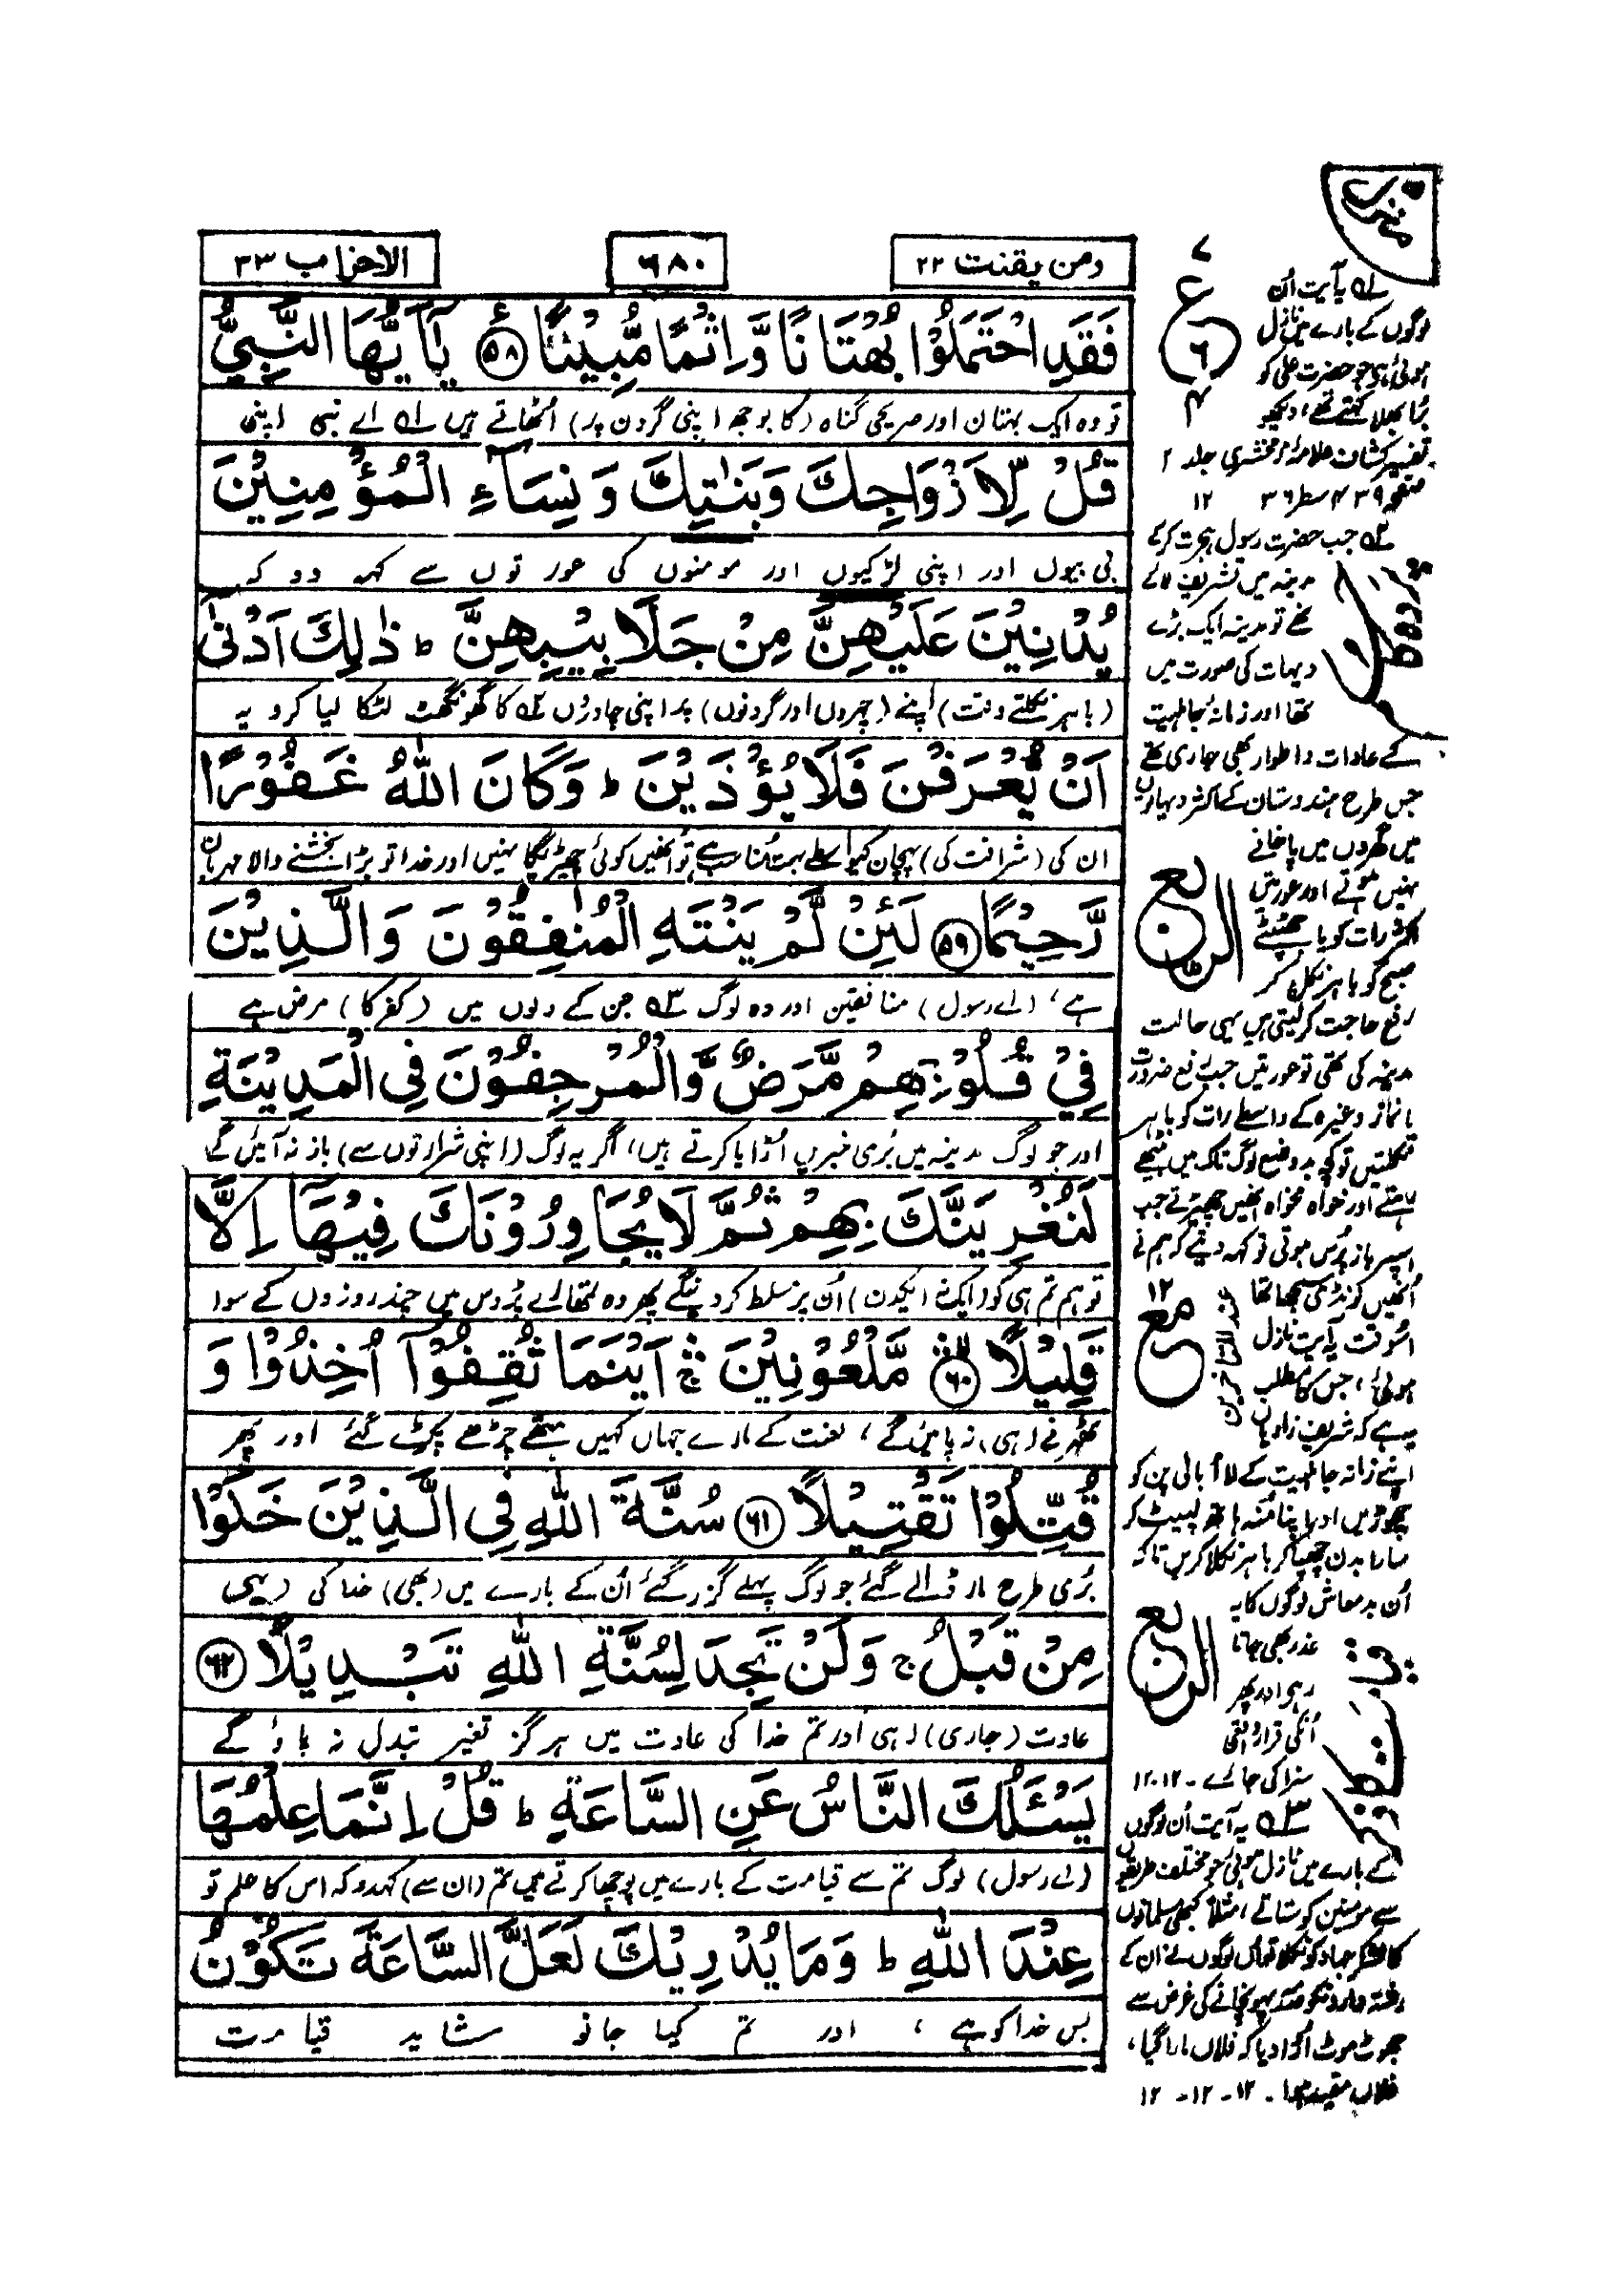 ومن یقنت ۲۲
۶۸۰
الاحزاب ۳۳
فَقَدِ احْتَمَلُوْا بُهْتَانًا وَّاِثْمًا مُّبِيْنًا ﴿۵۸﴾ يٰۤاَيُّهَا النَّبِيُّ
تو وہ ایک بہتان اور صریحی گناہ (کا بوجھ اپنی گردن پر) اُٹھاتے ہیں ۱؎ اے نبی اپنی
قُلْ لِّاَزْوَاجِكَ وَبَنٰتِكَ وَنِسَآءِ الْمُؤْمِنِيْنَ
بی بیوں اور اپنی لڑکیوں اور مومنوں کی عورتوں سے کہہ دو کہ
يُدْنِيْنَ عَلَيْهِنَّ مِنْ جَلَابِيْبِهِنَّ ؕ ذٰلِكَ اَدْنٰۤى
(باہر نکلتے وقت) اپنے (چہروں اور گردنوں) پر اپنی چادروں ۲؎ کا گھونگھٹ لٹکا لیا کرو یہ
اَنْ يُّعْرَفْنَ فَلَا يُؤْذَيْنَ ؕ وَكَانَ اللّٰهُ غَفُوْرًا
ان کی (شرافت کی) پہچان کیواسطے بہت مناسب ہے تو انھیں کوئی چھیڑیگا نہیں اور خدا تو بڑا بخشنے والا مہربان
رَّحِيْمًا ﴿۵۹﴾ لَئِنْ لَّمْ يَنْتَهِ الْمُنٰفِقُوْنَ وَالَّذِيْنَ
ہے، (اے رسول) منافقین اور وہ لوگ ۳؎ جن کے دلوں میں (کفر کا) مرض ہے
فِيْ قُلُوْبِهِمْ مَّرَضٌ وَّالْمُرْجِفُوْنَ فِى الْمَدِيْنَةِ
اور جو لوگ مدینہ میں بُری خبریں اُڑایا کرتے ہیں، اگر یہ لوگ (اپنی شرارتوں سے) باز نہ آئیں گے
لَنُغْرِيَنَّكَ بِهِمْ ثُمَّ لَا يُجَاوِرُوْنَكَ فِيْهَاۤ اِلَّا
تو ہم تم ہی کو (ایک نہ ایکدن) اُن پر مسلط کردینگے پھر وہ تمھارے پڑوس میں چند روزوں کے سوا
قَلِيْلًا ﴿۶۰﴾ مَّلْعُوْنِيْنَ ۛۚ اَيْنَمَا ثُقِفُوْۤا اُخِذُوْا وَ
ٹھہرنے (ہی) نہ پائیں گے، لعنت کے مارے جہاں کہیں ہتھے چڑھے پکڑے گئے اور پھر
قُتِّلُوْا تَقْتِيْلًا ﴿۶۱﴾ سُنَّةَ اللّٰهِ فِى الَّذِيْنَ خَلَوْا
بُری طرح مار ڈالے گئے جو لوگ پہلے گزر گئے اُن کے بارے میں (بھی) خدا کی (یہی
مِنْ قَبْلُ ۚ وَلَنْ تَجِدَ لِسُنَّةِ اللّٰهِ تَبْدِيْلًا ﴿۶۲﴾
عادت (جاری) رہی اور تم خدا کی عادت میں ہرگز تغیر تبدل نہ پاؤ گے
يَسْـَٔلُكَ النَّاسُ عَنِ السَّاعَةِ ؕ قُلْ اِنَّمَا عِلْمُهَا
(اے رسول) لوگ تم سے قیامت کے بارے میں پوچھا کرتے ہیں تم (ان سے) کہدو کہ اس کا علم تو
عِنْدَ اللّٰهِ ؕ وَمَا يُدْرِيْكَ لَعَلَّ السَّاعَةَ تَكُوْنُ
بس خدا کو ہے، اور تم کیا جانو شاید قیامت
۷
ع
۶
۱؎ یہ آیت اُن
لوگوں کے بارے میں نازل
ہوئی ہے جو حضرت علی کو
بُرا بھلا کہتے تھے، دیکھو
تفسیر کشاف علامۂ زمخشری جلد ۲
صفحہ ۴۳۹ سطر ۳۶ ۱۲
۲؎ جب حضرت رسول ہجرت کرکے
مدینہ میں تشریف لائے
تھے تو مدینہ ایک بڑے
دیہات کی صورت میں
تھا اور زمانۂ جاہلیت
کے عادات و اطوار بھی جاری تھے
جس طرح ہندوستان کے اکثر دیہاتوں
میں گھروں میں پاخانے
نہیں ہوتے اور عورتیں
اکثر رات کو یا جھٹپٹے
صبح کو باہر نکل کر
رفع حاجت کرلیتی ہیں یہی حالت
مدینہ کی تھی تو عورتیں جب رفع ضرورت
یا نماز وغیرہ کے واسطے رات کو باہر
نکلتیں تو کچھ بدوضع لوگ تاک میں بیٹھے
رہتے اور خواہ مخواہ انھیں چھیڑتے جب
اسپر باز پُرس ہوتی تو کہہ دیتے کہ ہم نے
اُنھیں لونڈی سمجھا تھا
اُسوقت یہ آیت نازل
ہوئی، جس کا مطلب
یہ ہے کہ شریف زادیاں
اپنے زمانہ جاہلیت کے لا اُبالی پن کو
چھوڑیں اور اپنا مُنہ ہاتھ لپیٹ کر
سارا بدن چھپا کر باہر نکلا کریں تاکہ
اُن بدمعاش لوگوں کا یہ
عذر بھی جاتا
رہے اور پھر
اُنکی قرار واقعی
سزا کی جائے ۔ ۱۲۔۱۲
۳؎ یہ آیت اُن لوگوں
کے بارے میں نازل ہوئی جو مختلف طریقوں
سے مومنین کو ستاتے، مثلاً کبھی مسلمانوں
کا لشکر جہاد کو نکلا تو اُن لوگوں نے ان کے
رشتہ داروں کو صدمہ پہونچانے کی غرض سے
جھوٹ موٹ اُڑا دیا کہ فلاں مارا گیا،
فلاں مقید ہوا ۔ ۱۲ ۔ ۱۲ ۔ ۱۲